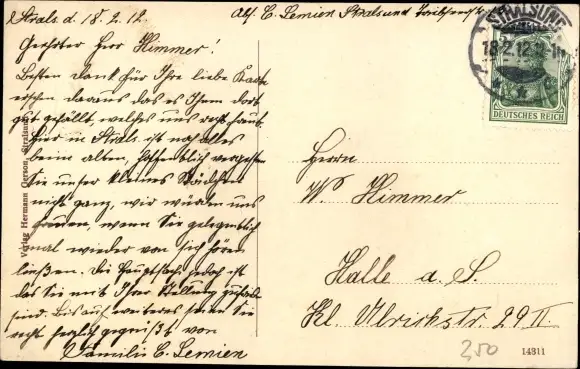 Strals. d. 18.2.12.
Abs. C. Lemien Stralsund
Geehrter Herr Himmer!
Besten Dank für Ihre liebe Karte
ersehen daraus das es Ihnen dort
gut gefällt, welches uns recht freut.
Hier in Strals. ist noch alles
beim alten, hoffentlich vergessen
Sie unser kleines Städtchen
nicht ganz, wir würden uns
freuen, wenn Sie gelegentlich
mal wieder von sich hören
ließen. Die Hauptsache jedoch ist
das Sie mit Ihrer Stellung zufrieden
sind. Bis auf weiteres seien Sie
recht herzlich gegrüßt von
Familie C. Lemien
Verlag Hermann Gerson, Stralsund
STRALSUND
18.2.12
DEUTSCHES REICH
Herrn
W. Himmer
Halle a. S.
Kl. Ulrichstr. 29 II.
2,50
14311